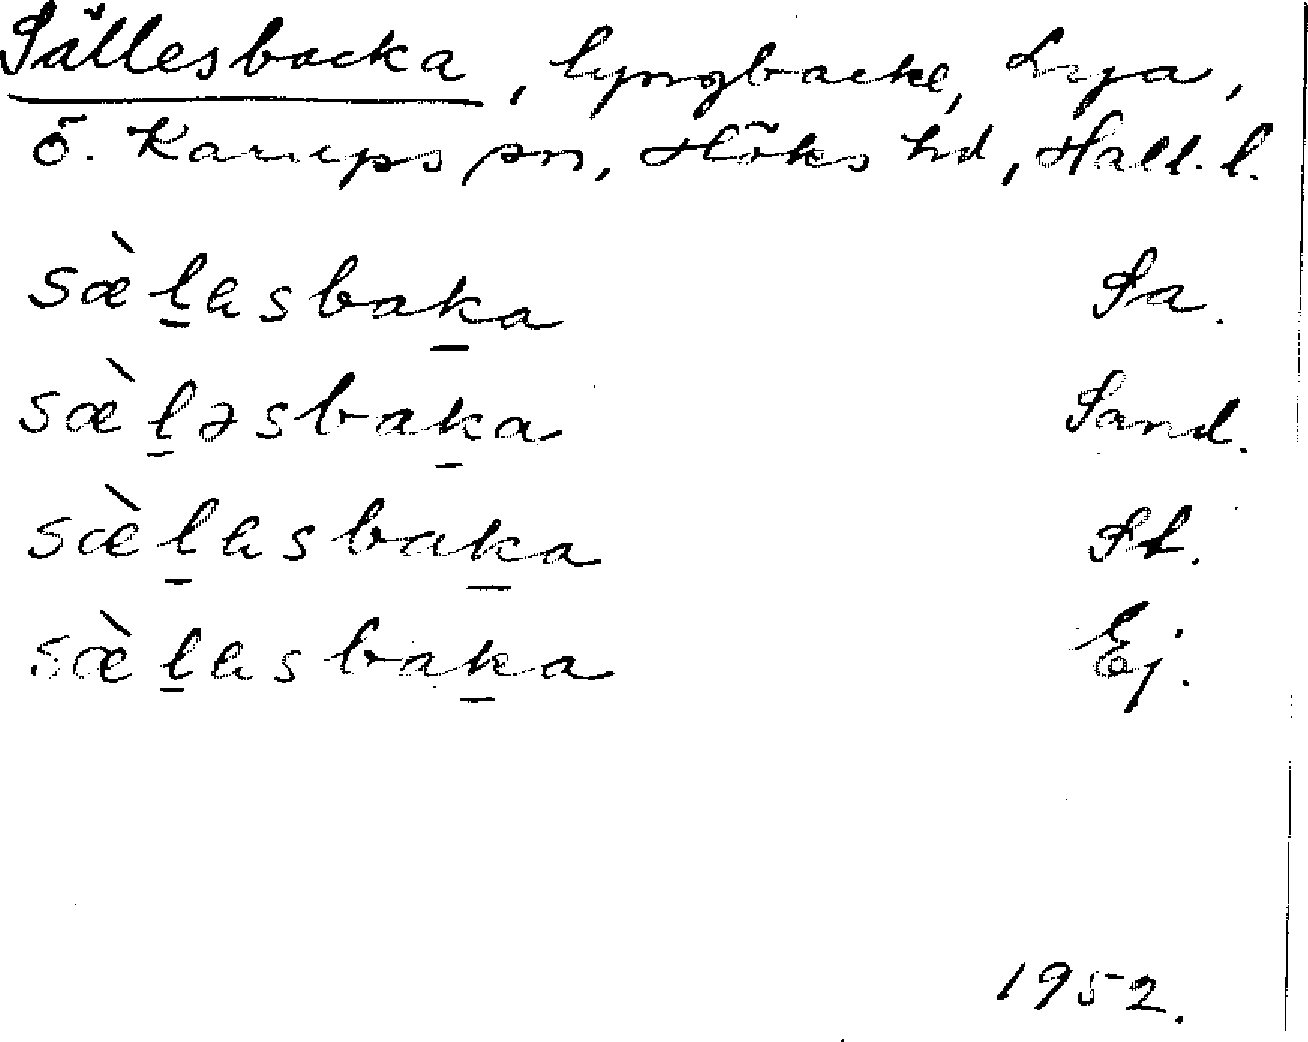 Sällesbacka, lyngbacke, Lya,
Ö. Karups sn, Höks hd, Hall. l.
sæ̀l̠ɐsbak̠a Sa.
sæ̀l̠əsbak̠a Sand.
sæ̀l̠ɐsbak̠a St.
sæ̀l̠ɐsbak̠a Ej.
1952.